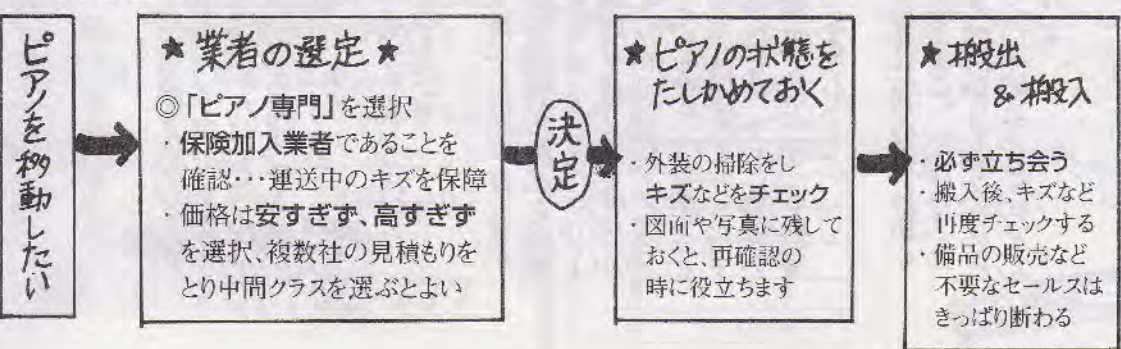 ピアノを移動したい
★業者の選定★
◎「ピアノ専門」を選択
・保険加入業者であることを
確認…運送中のキズを保障
・価格は安すぎず、高すぎず
を選択、複数社の見積もりを
とり中間クラスを選ぶとよい
決定
★ピアノの状態を
たしかめておく
・外装の掃除をし
キズなどをチェック
・図面や写真に残して
おくと、再確認の
時に役立ちます
★搬出
&搬入
・必ず立ち会う
・搬入後、キズなど
再度チェックする
・備品の販売など
不要なセールスは
きっぱり断わる